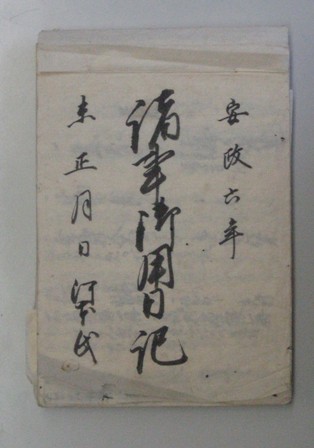 安政六年
諸事御用日記
未正月日 江本氏